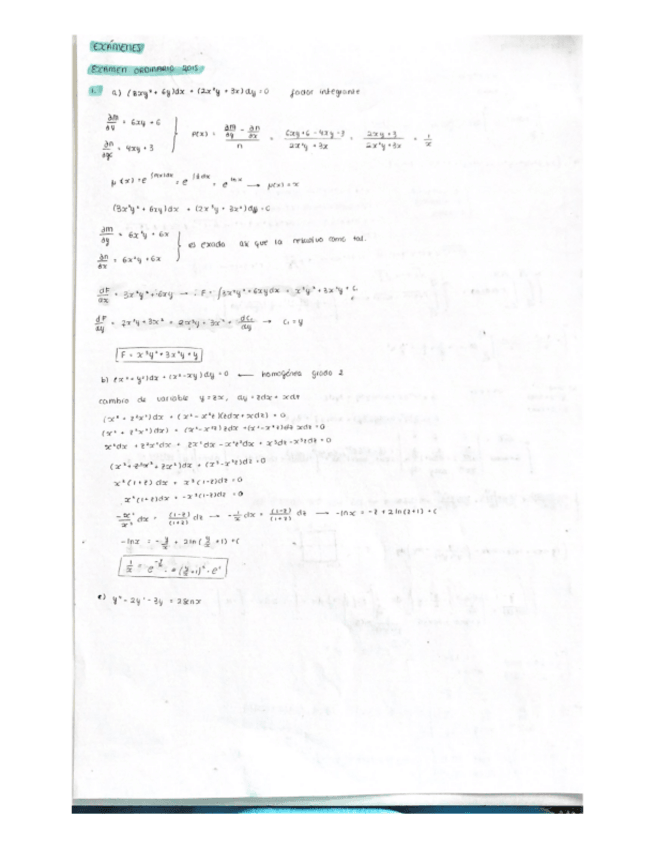 EXÁMENES
EXAMEN ORDINARIO 2015
1. a) (3xy² + 6y)dx + (2x²y + 3x)dy = 0 factor integrante
∂m/∂y = 6xy + 6
∂n/∂x = 4xy + 3
p(x) = (∂m/∂y - ∂n/∂x)/n = (6xy + 6 - 4xy - 3)/(2x²y + 3x) = (2xy + 3)/(2x²y + 3x) = 1/x
μ(x) = e = e = e^(ln x) → μ(x) = x
(3x²y² + 6xy)dx + (2x³y + 3x²)dy = C
∂m/∂y = 6x²y + 6x
∂n/∂x = 6x²y + 6x
es exacta que la
∂F/∂x = 3x²y² + 6xy → F = ∫3x²y² + 6xy dx = x³y² + 3x²y + C
dF/dy = 2x³y + 3x² = 2x³y + 3x² + dC₁/dy → C₁ = y
F = x³y² + 3x²y + y
b) (x² + y²)dx + (x² - xy)dy = 0 ← homogénea grado 2
cambio de variable y = zx, dy = zdx + xdz
(x² + z²x²)dx + (x² - x²z)(zdx + xdz) = 0
(x² + z²x²)dx + (x² - x²z)zdx + (x² - x²z)xdz = 0
x²dx + z²x²dx + zx²dx - x²z²dx + x³dz - x³zdz = 0
(x² + z²x² + zx²)dx + (x³ - x³z)dz = 0
x²(1+z)dx + x³(1-z)dz = 0
x²(1+z)dx = -x³(1-z)dz = 0
-x²/x³ dx = (1-z)/(1+z) dz → -1/x dx = (1-z)/(1+z) dz → -lnx = -z + 2ln(z+1) + C
-lnx = -y/x + 2ln(y/x + 1) + C
1/x = e
c) y'' - 2y' - 3y = 2senx